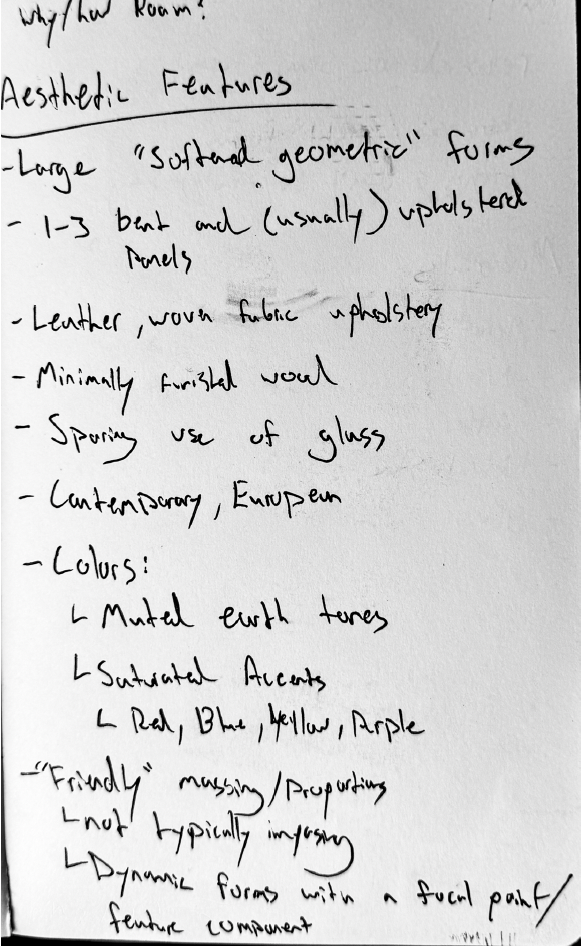 Why/how Roam?
Aesthetic Features
- Large "Softened geometric" forms
- 1-3 bent and (usually) upholstered
panels
- Leather, woven fabric upholstery
- Minimally finished wood
- Sparing use of glass
- Contemporary, European
- Colors:
└ Muted earth tones
└ Saturated Accents
└ Red, Blue, Yellow, Purple
- "Friendly" massing/proportions
└ not typically imposing
└ Dynamic forms with a focal point/
feature component